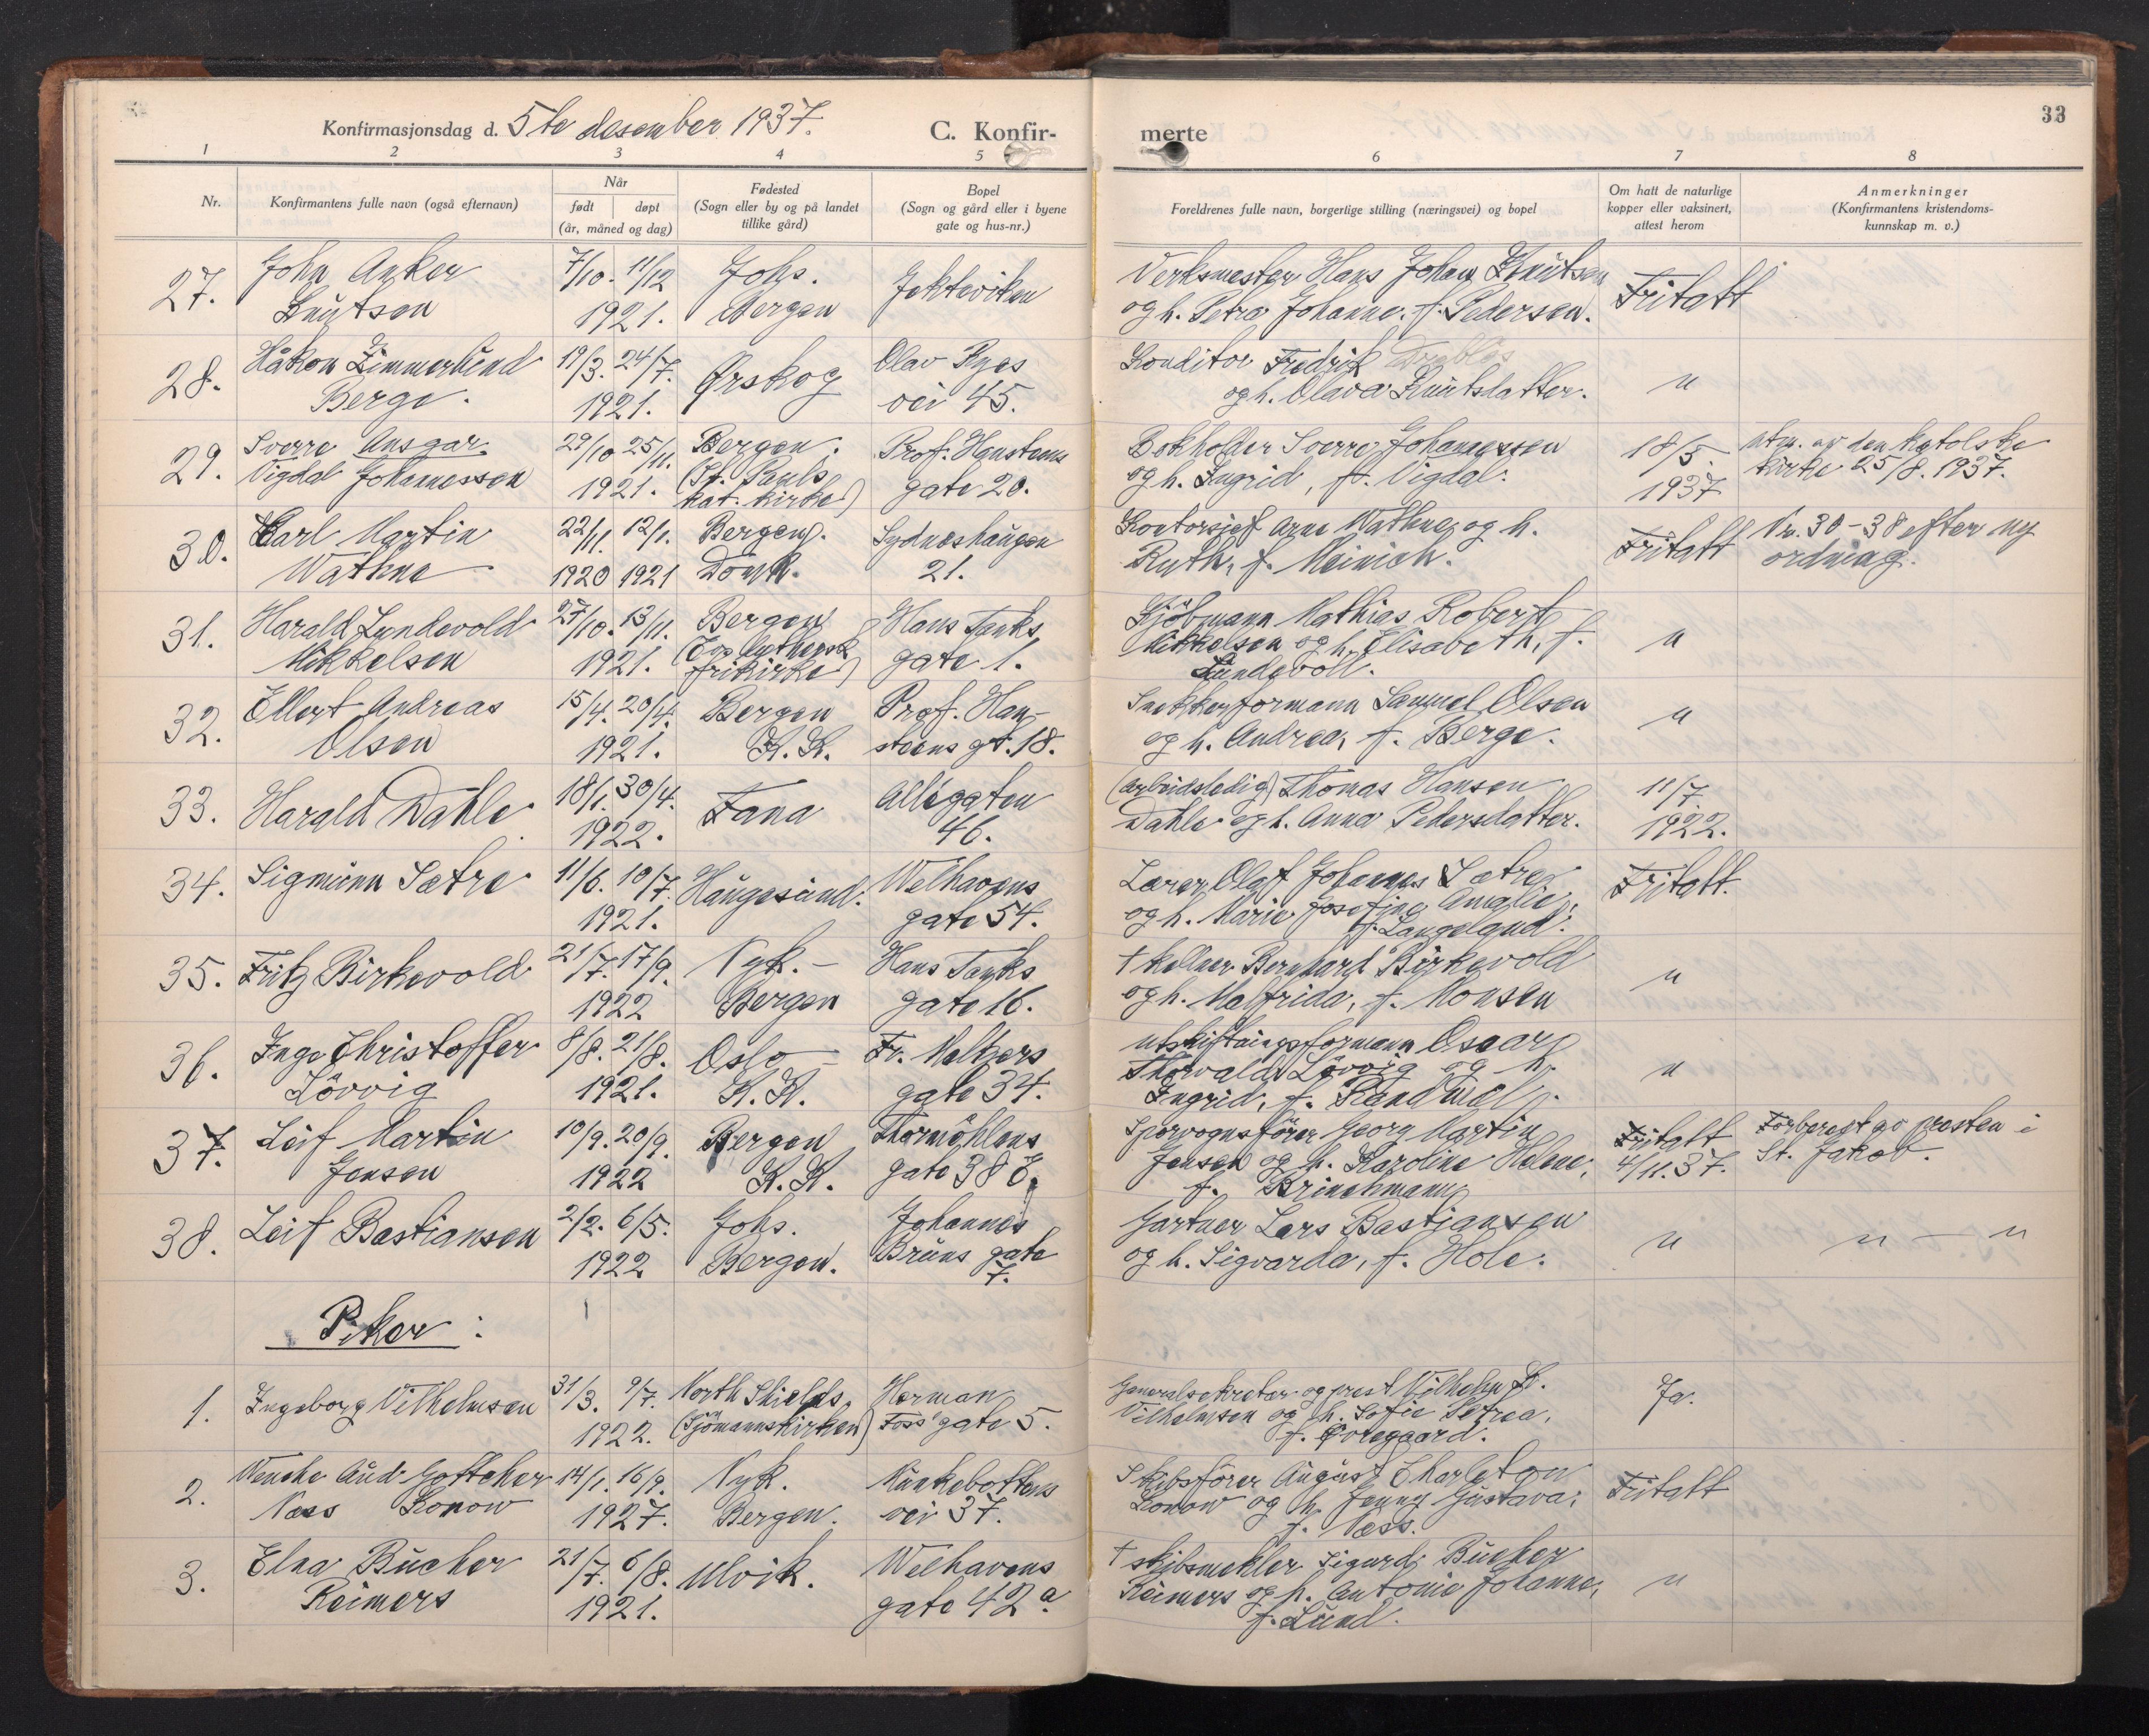 33
Konfirmasjonsdag d. 5te desember 1937. C. Konfirmerte
1 2 3 4 5 6 7 8
Nr.
Konfirmantens fulle navn (også efternavn)
Når
født døpt
(år, måned og dag)
Fødested
(Sogn eller by og på landet
tillike gård)
Bopel
(Sogn og gård eller i byene
gate og hus-nr.)
Foreldrenes fulle navn, borgerlige stilling (næringsvei) og bopel
Om hatt de naturlige
kopper eller vaksinert,
attest herom
Anmerkninger
(Konfirmantens kristendoms-
kunnskap m. v.)
27. John Anker 7/10. 11/12 Johs. Jekteviken Verksmester Hans Johan Knutsen Fritatt
Knutsen 1921. Bergen og h. Petra Johanne, f. Pedersen.
28. Håkon Zimmerlund 19/3. 24/7. Ørskog Olav Ryes Konditor Fredrik "
Berge. 1921. vei 45. og h. Olava Knutsdatter.
29. Sverre Ansgar 29/10 25/11. Bergen. Prof. Hansteens Bokholder Sverre Johannessen 18/5. utm. av den katolske
Vigdal Johannessen 1921. (St. Pauls gate 20. og h. Ingrid, f. Vigdal. 1937 kirke 25/8. 1937.
kat. kirke)
30. Carl Martin 22/11. 12/1. Bergen. Sydneshaugen Kontorsjef Arne Wathne og h. Fritatt Nr. 30-38 efter ny
Wathne 1920 1921 Domk. 21. Ruth, f. Meinich. ordning.
31. Harald Lundevold 27/10. 13/11. Bergen Hans Tanks Kjöbmann Mathias Robert "
Mikkelsen 1921. (Ev. luthersk gate 1. Mikkelsen og h. Elisabeth, f.
frikirke) Lundevoll.
32. Ellert Andreas 15/4. 20/4. Bergen Prof. Han- Snekkerformann Samuel Olsen "
Olsen 1921. K. K. steens gt. 18. og h. Andrea, f. Berge.
33. Harald Dahle 18/1. 30/4. Fana Allégaten (arbeidsledig) Thomas Hansen 11/7.
1922. 46. Dahle og h. Anna Pedersdatter. 1922.
34. Sigmunn Sætre 11/6. 10/7. Haugesund. Welhavens Lærer Olaf Johannes Sætre Fritatt.
1921. gate 54. og h. Marie Josefine Amalie,
f. Langeland.
35. Fritz Birkevold 21/7. 17/9. Nyk. - Hans Tanks † kelner Bernhard Birkevold "
1922 Bergen gate 16. og h. Malfrida, f. Monsen
36. Inge Christoffer 8/8. 21/8. Oslo Fr. Meltzers utskiftningsformann Oscar "
Lövvig 1921. K. K. gate 34. Thorvald Lövvig og h.
Ingrid, f.
37. Leif Martin 10/9. 20/9. Bergen Thormöhlens Sporvognsförer Georg Martin Fritatt Forberedt av presten i
Jensen 1922 K. K. gate 38 Jensen og h. Karoline Helene, 4/11. 37. St. Jakob.
f. Brinchmann
38. Leif Bastiansen 2/2. 6/5. Johs. Johannes Gartner Lars Bastiansen " " - "
1922 Bergen. Bruns gate og h. Sigvarda, f. Hole.
7.
Piker:
1. Ingeborg Vilhelmsen 31/3. 9/7. North Shields. Herman Generalsekretær og prest Vilhelm Ja.
1922. (Sjömannskirken) Foss' gate 5. Vilhelmsen og h. Sofie Petrea,
f. Ovregaard.
2. Wenche Aud Gottcher 14/1. 16/9. Nyk. Munkebottens Skibsförer August Charleton Fritatt
Næss Konow 1927. Bergen. vei 37. Konow og h. Jenny Gustava,
f. Næss.
3. Elna Bucher 21/7. 6/8. Ulvik. Welhavens † skibsmekler Sigurd Bucher "
Reimers 1921. gate 42 a. Reimers og h. Antonie Johanne,
f. Lund.